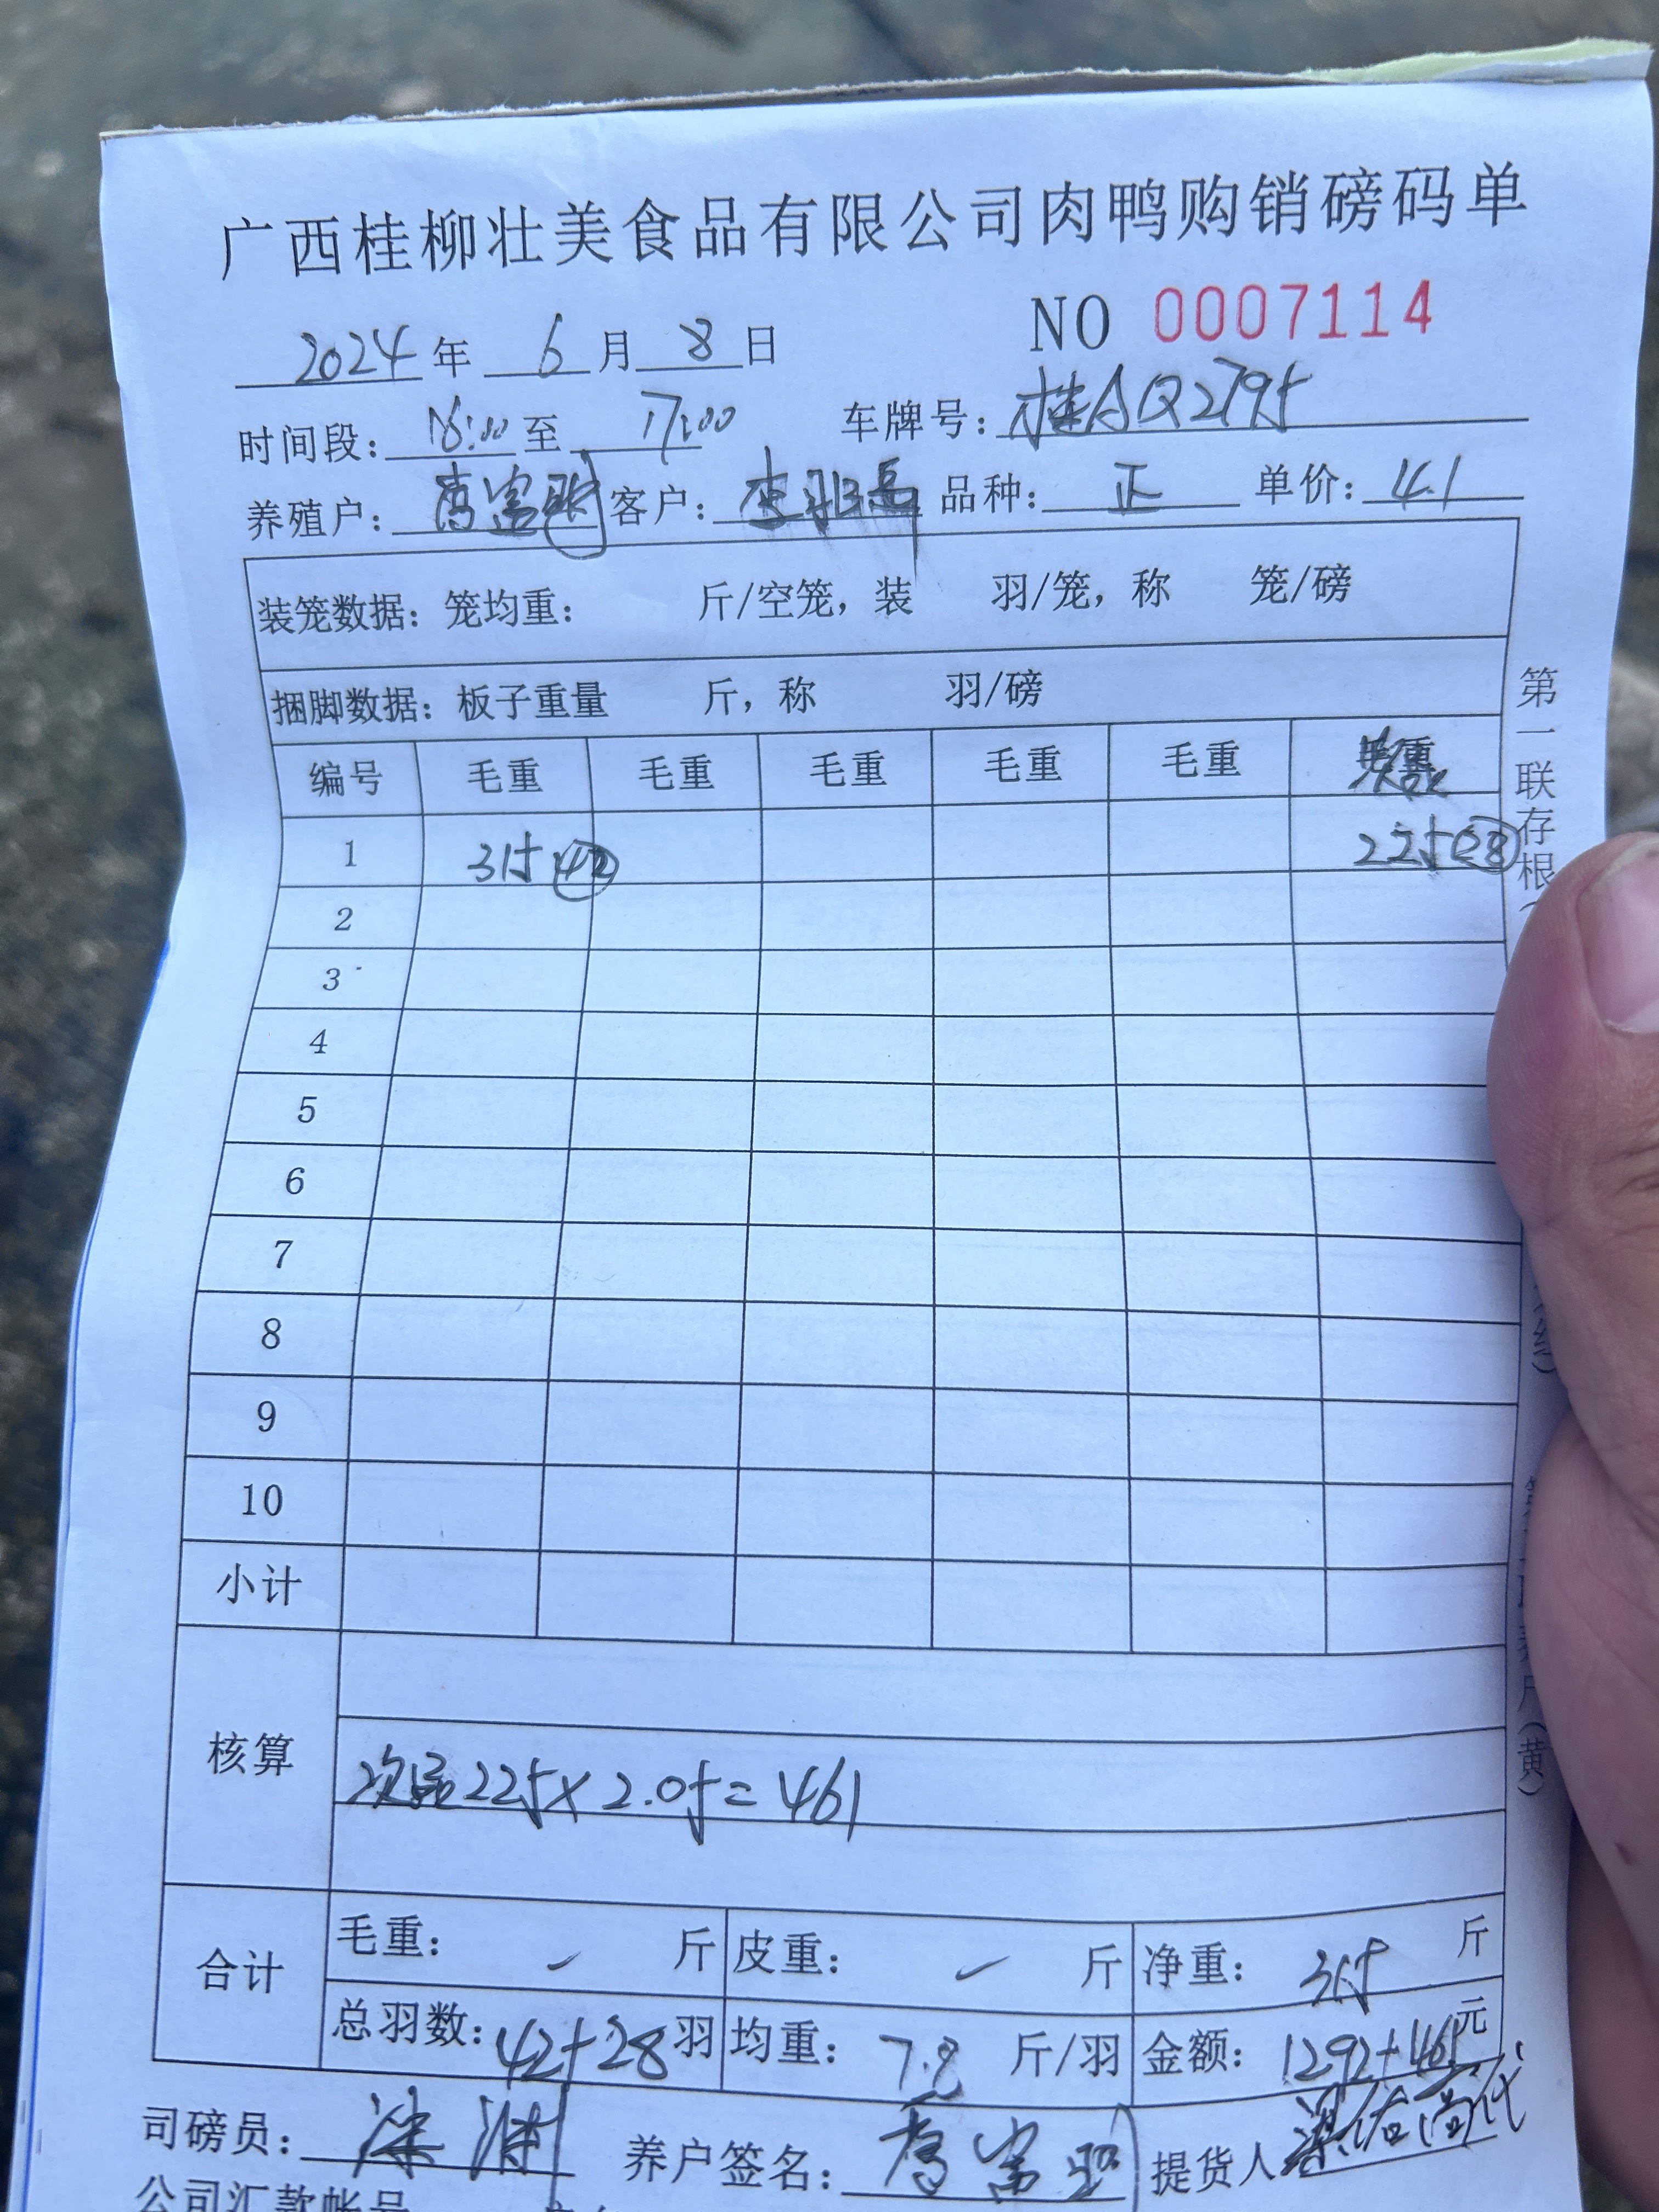 广西桂柳壮美食品有限公司肉鸭购销磅码单
NO 0007114
2024年 6月 8日
时间段：16:00至 17:00 车牌号：桂AQ2795
养殖户： 客户： 品种：正 单价：4.1
装笼数据：笼均重： 斤/空笼，装 羽/笼，称 笼/磅
捆脚数据：板子重量 斤，称 羽/磅
编号 毛重 毛重 毛重 毛重 毛重
1 315 42 225 28
2
3
4
5
6
7
8
9
10
小计
核算
次品225×2.05=461
合计
毛重： 斤 皮重： 斤 净重：315 斤
总羽数：42+28羽 均重：7.8 斤/羽 金额：1292+461元
司磅员： 养户签名： 提货人
公司汇款帐号
第一联存根（
（红）
（黄）